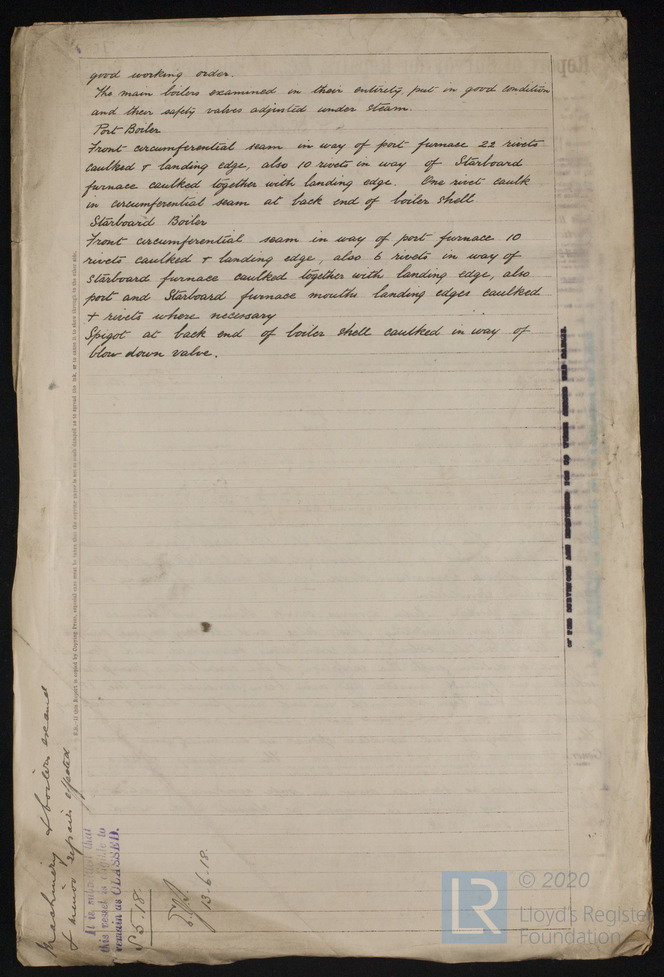 good working order.
The main boilers examined in their entirety, put in good condition
and their safety valves adjusted under steam.
Port Boiler
Front circumferential seam in way of port furnace 22 rivets
caulked & landing edge, also 10 rivets in way of Starboard
furnace caulked together with landing edge. One rivet caulk
in circumferential seam at back end of boiler shell
Starboard Boiler
Front circumferential seam in way of port furnace 10
rivets caulked & landing edge, also 6 rivets in way of
starboard furnace caulked together with landing edge, also
port and Starboard furnace mouths landing edges caulked
& rivets where necessary
Spigot at back end of boiler shell caulked in way of
blow down valve.
Machinery & boilers examd
& minor repairs effected
It is submitted that
this vessel is eligible to
remain as CLASSED.
13.6.18.
LR
© 2020
Lloyd's Register
Foundation